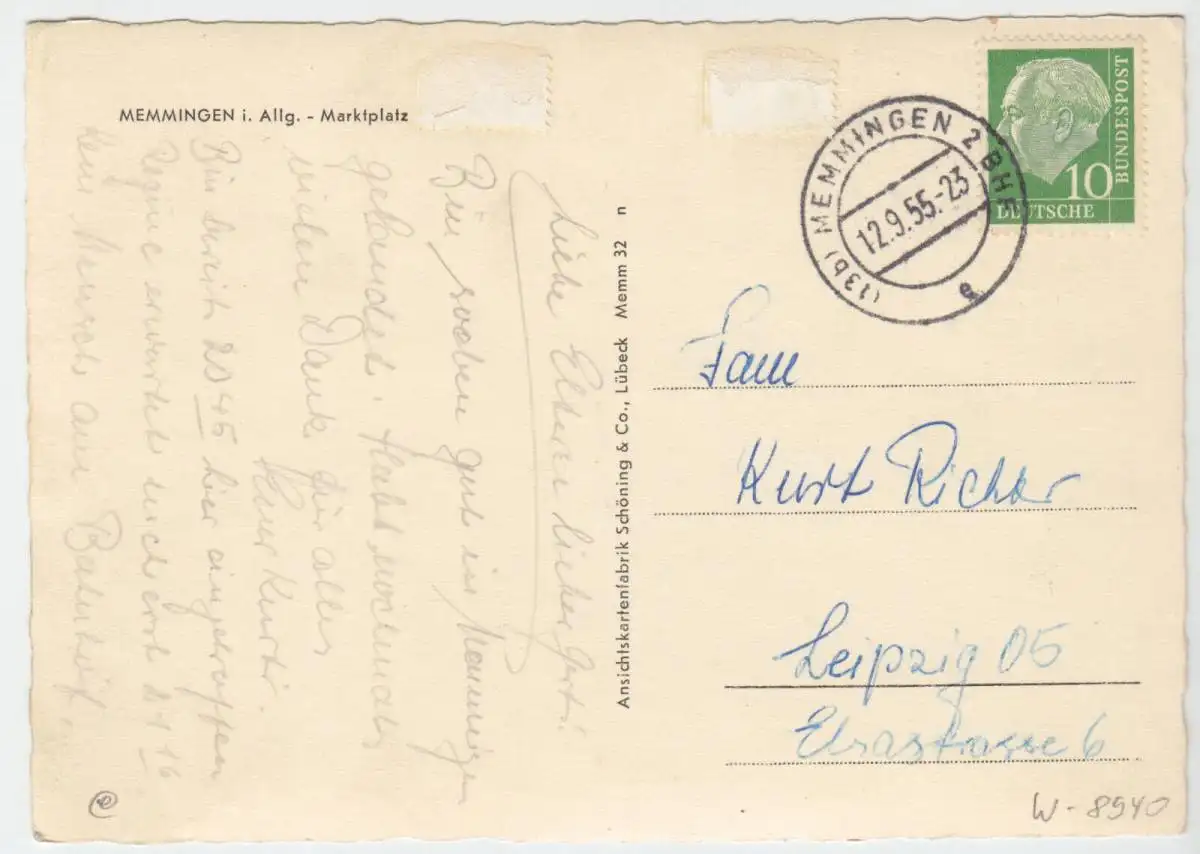 MEMMINGEN i. Allg. - Marktplatz
Liebe Eltern lieber Gert!
Bin soeben gut in Memmingen
gelandet. Habt nochmals
vielen Dank für alles
Euer Kurti.
Bin bereits 20 45 hier eingetroffen
erwartet mich erst 21 16
Kein Mensch am Bahnhof.
Ansichtskartenfabrik Schöning & Co., Lübeck Memm 32 n
(13b) MEMMINGEN 2 BHF
12.9.55.-23
e
10
DEUTSCHE
BUNDESPOST
Fam
Kurt Richter
Leipzig O5
Elsastrasse 6
W-8940